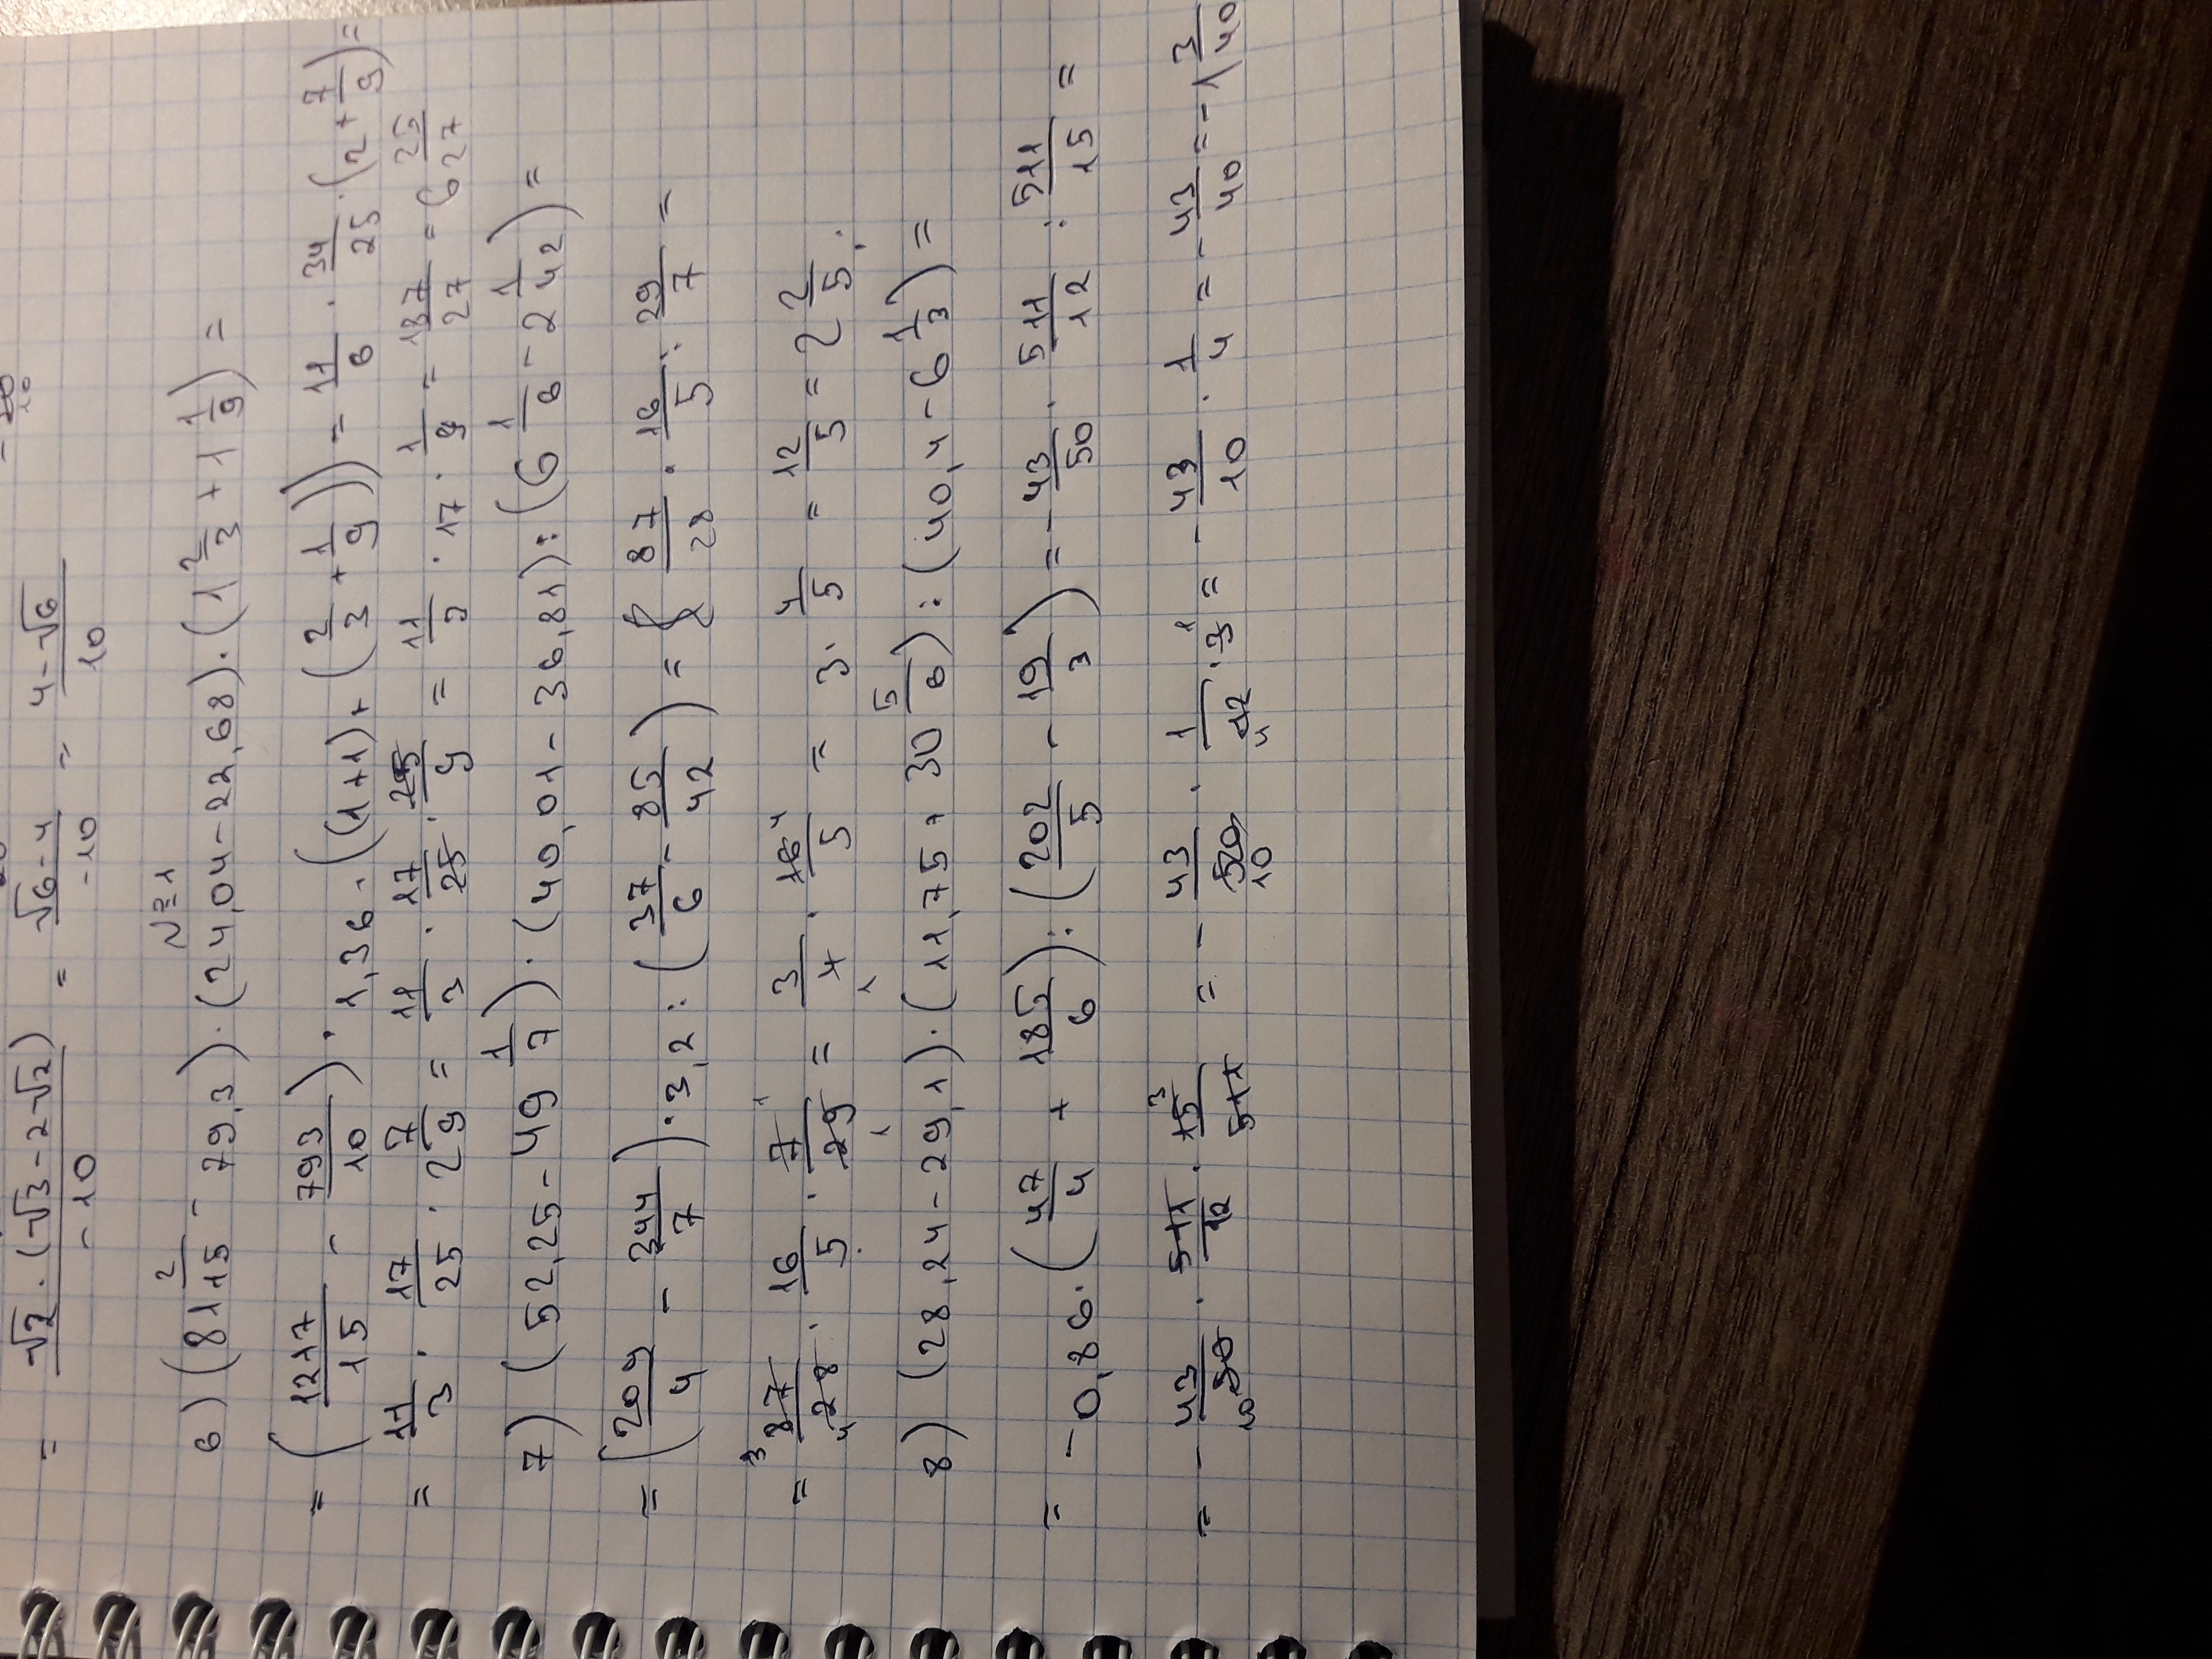 = √2 · (√3 - 2√2) / -10 = √6 - 4 / -10 = 4 - √6 / 10
№1
6) (81 2/15 - 79,3) · (24,04 - 22,68) · (1 2/3 + 1 1/9) =
= (1217/15 - 793/10) · 1,36 · ((1+1) + (2/3 + 1/9)) = 11/6 · 34/25 · (2 + 7/9) =
= 11/3 · 17/25 · 2 7/9 = 11/3 · 17/25 · 25/9 = 11/3 · 17 · 1/9 = 187/27 = 6 25/27
7) (52,25 - 49 1/7) · (40,01 - 36,81) : (6 1/6 - 2 1/42) =
= (209/4 - 344/7) · 3,2 : (37/6 - 85/42) = 87/28 · 16/5 : 29/7 =
= 87/28 · 16/5 · 7/29 = 3/4 · 16/5 = 3 · 4/5 = 12/5 = 2 2/5 ;
8) (28,24 - 29,1) · (11,75 + 30 5/6) : (40,4 - 6 1/3) =
= -0,86 · (47/4 + 185/6) : (202/5 - 19/3) = - 43/50 · 511/12 : 511/15 =
= - 43/50 · 511/12 · 15/511 = - 43/50 · 1/12 · 3 = - 43/10 · 1/4 = - 43/40 = -1 3/40